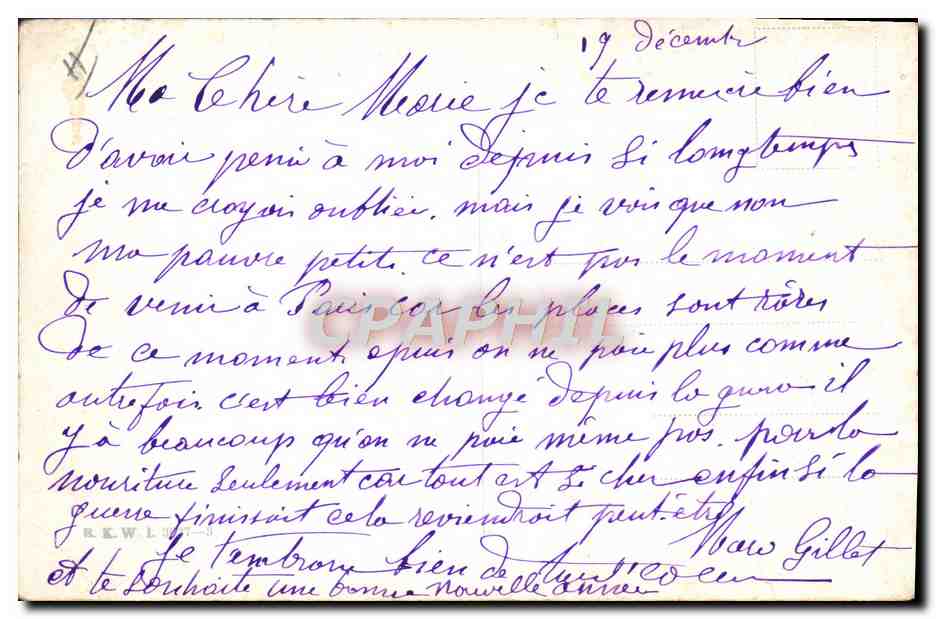 19 décembre
Ma Chère Marie je te remercie bien
d'avoir pensé à moi depuis si longtemps
je me croyais oubliée. mais je vois que non
ma pauvre petite. ce n'est pas le moment
de venir à Paris car les places sont rares
de ce moment. epuis on ne paie plus comme
autrefois. c'est bien changé depuis la guerre il
y à beaucoup qu'on ne paie même pas. pour la
nouriture seulement car tout est si cher enfin si la
guerre finissait cela reviendrait peut-être
B.K.W.I.
Je t'embrasse bien de Gillet
et te souhaite une bonne nouvelle année
CPAPHIL